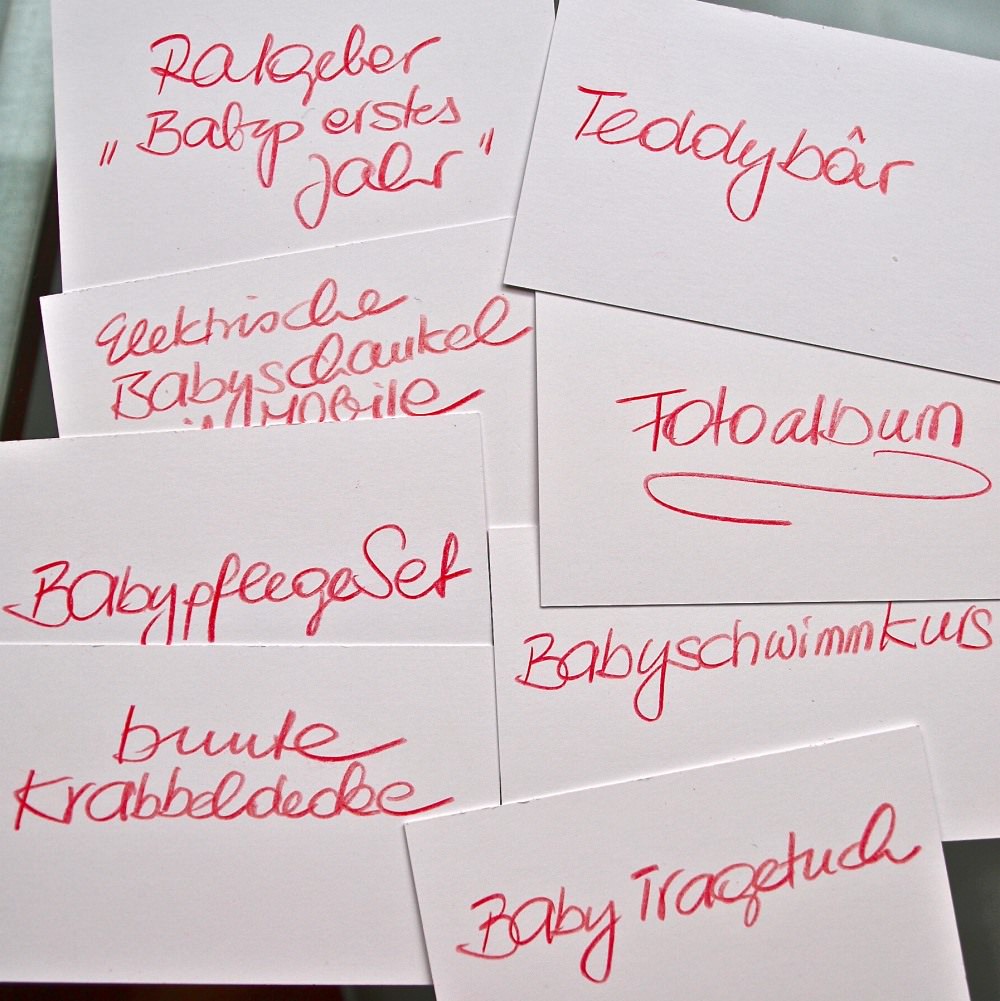 Ratgeber
„Babys erstes
Jahr"
Teddybär
Elektrische
Babyschaukel
Mobile
Fotoalbum
BabypflegeSet
Babyschwimmkurs
bunte
Krabbeldecke
Baby Tragetuch